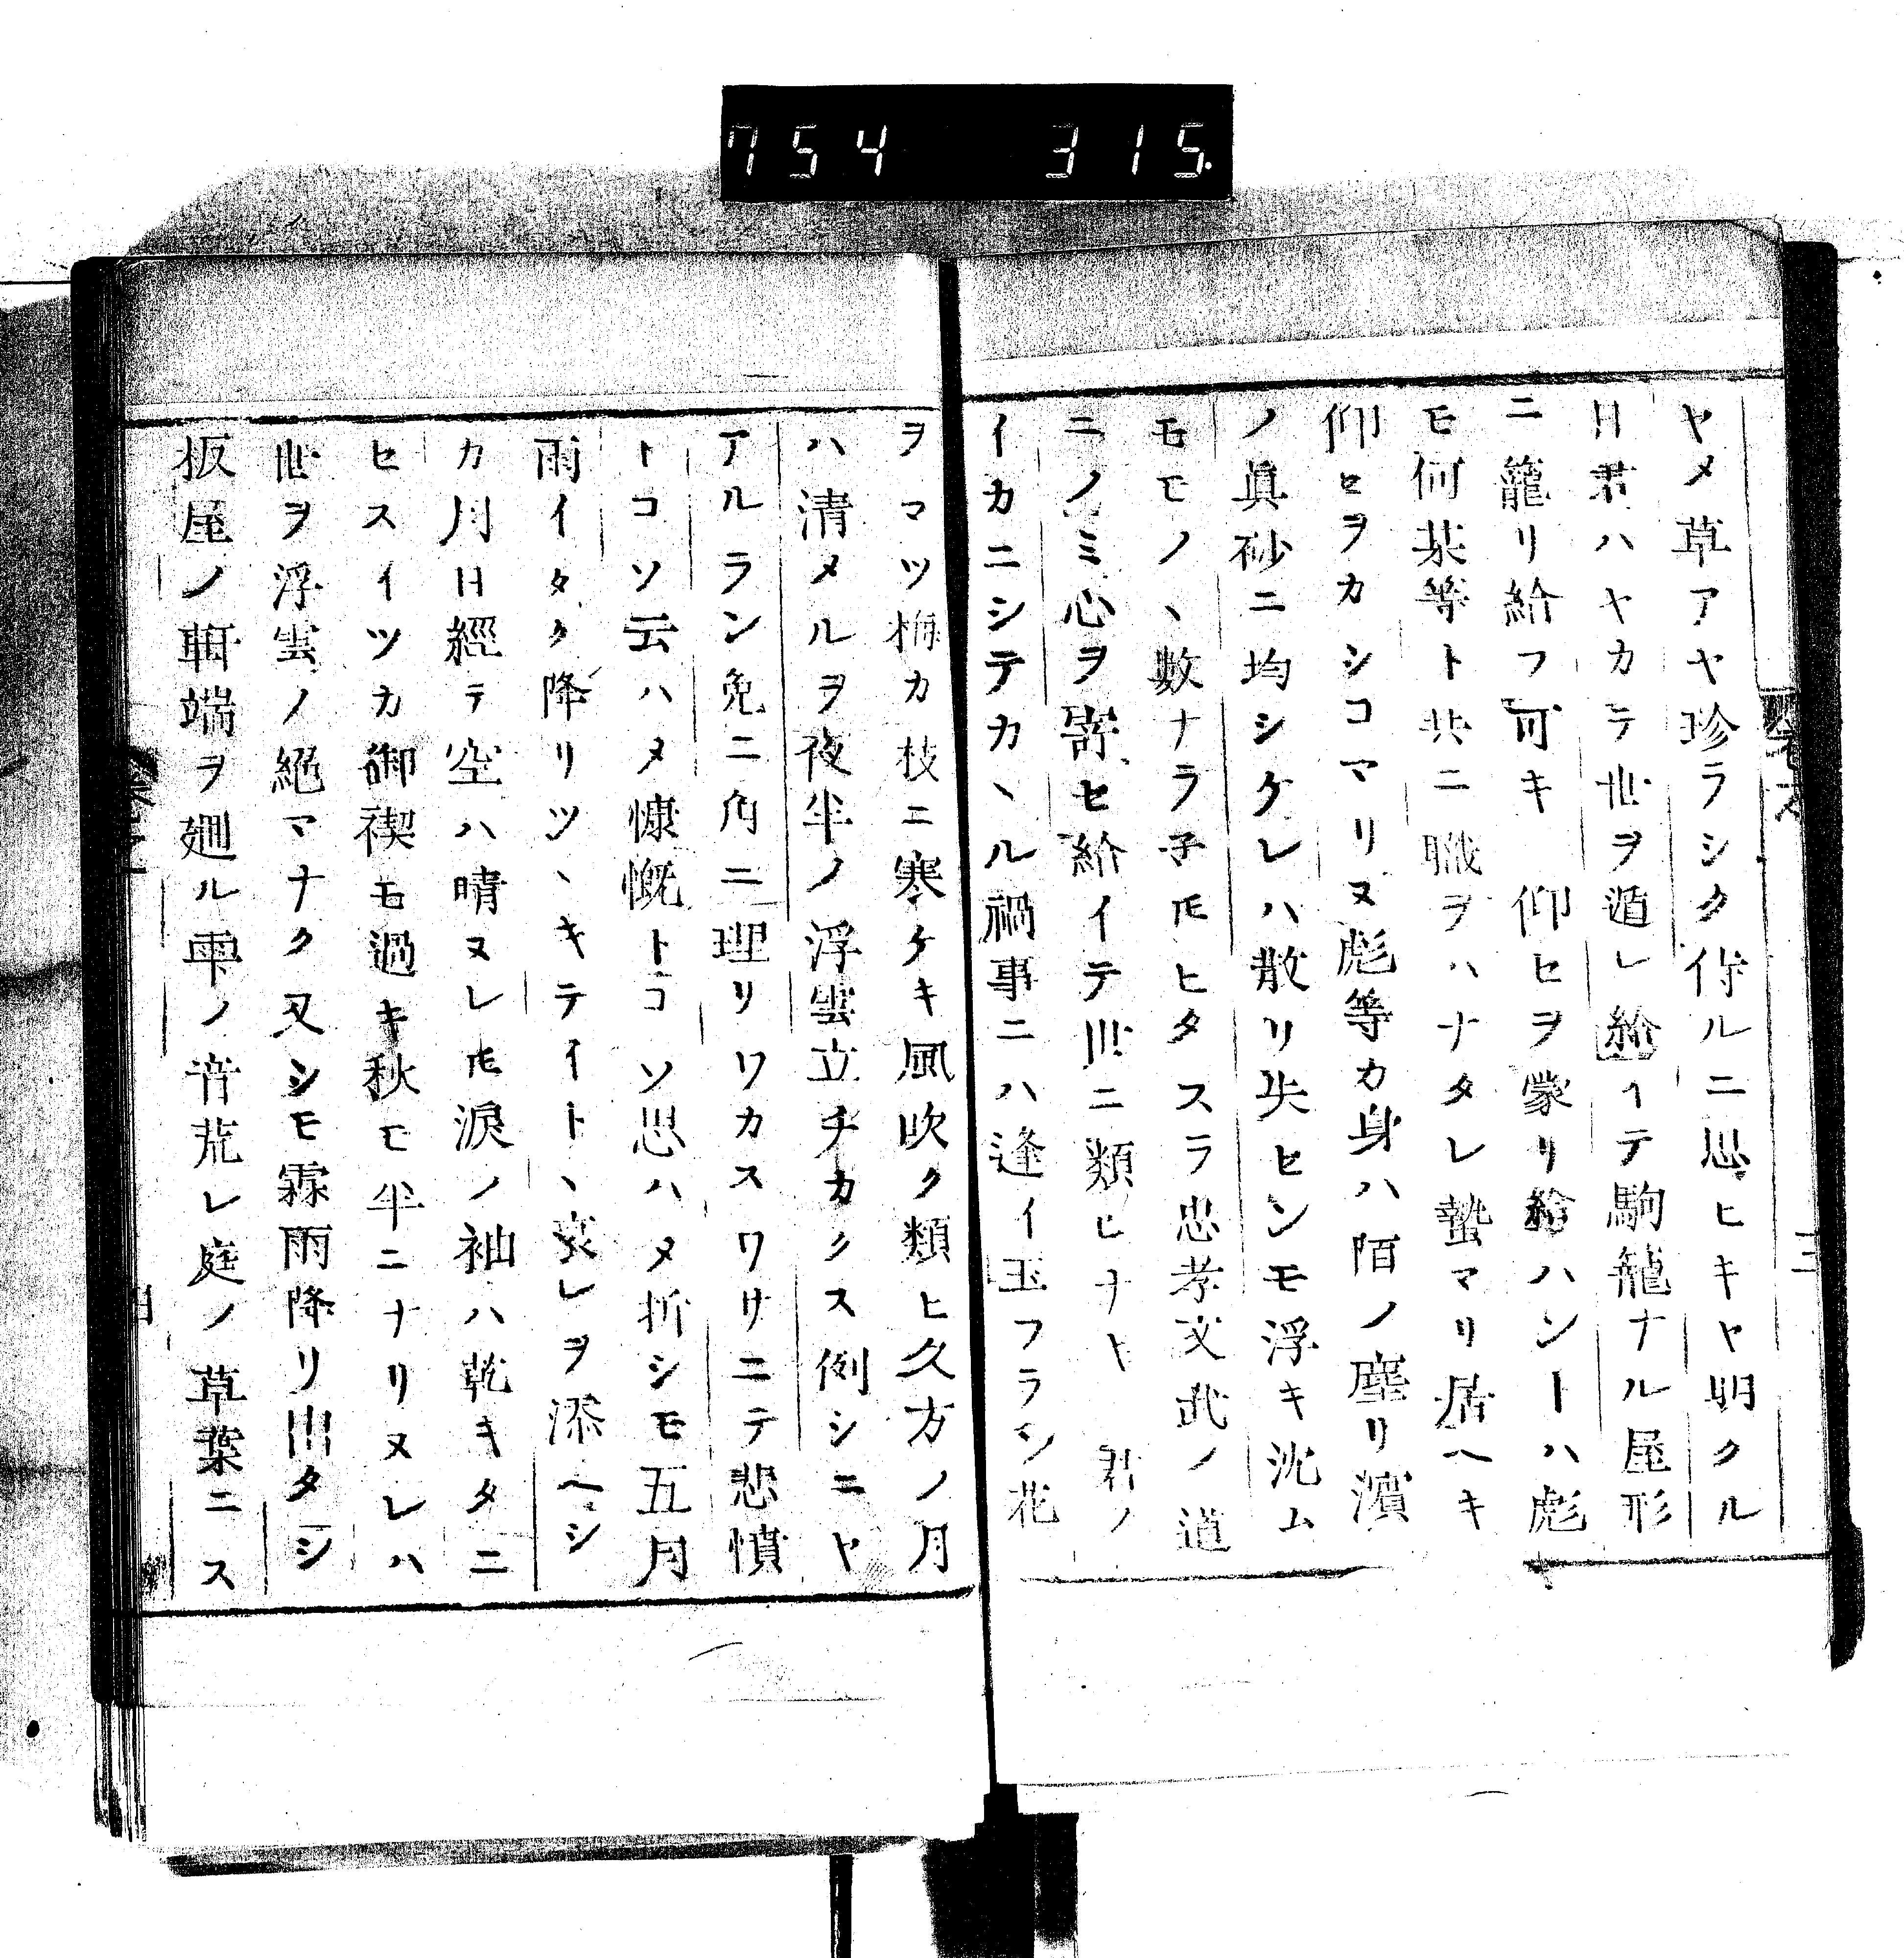 754 315
ヤメ草アヤ珍ラシク侍ルニ思ヒキヤ明クル
日君ハヤカテ世ヲ遁レ給イテ駒籠ナル屋形
ニ籠リ給フ可キ 仰セヲ蒙リ給ハンーハ彪
モ何某等ト共ニ職ヲハナタレ蟄マリ居ヘキ
仰セヲカシコマリヌ彪等カ身ハ陌ノ塵リ濱
ノ眞砂ニ均シケレハ散リ失センモ浮キ沈ム
モモノヽ数ナラ子𪜈ヒタスラ忠孝文武ノ道
ニノミ心ヲ寄セ給イテ世ニ類ヒナキ 君ノ
イカニシテカヽル禍事ニハ逢イ玉フラン花
ヲマツ梅カ枝ニ寒ケキ風吹ク類ヒ久方ノ月
ハ清メルヲ夜半ノ浮雲立チカクス例シニヤ
アルラン兔ニ角ニ理リワカスワリニテ悲憤
トコソ云ハメ慷慨トコソ思ハメ折シモ五月
雨イタク降リツヽキテイトヽ哀レヲ添ヘシ
カ月日經テ空ハ晴ヌレ𪜈涙ノ袖ハ乾キタニ
セスイツカ御禊モ過キ秋モ半ニナリヌレハ
世ヲ浮雲ノ絕マナク又シモ霖雨降リ出タシ
板屋ノ軒端ヲ廻ル雫ノ音荒レ庭ノ草葉ニス